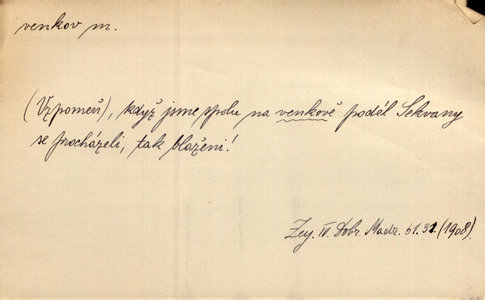 venkov m.
(Vzpomeň), když jsme spolu na venkově podél Sekvany
se procházeli, tak blaženi!
Zey. IV. Dobr. Madr. 51.31 (1908).